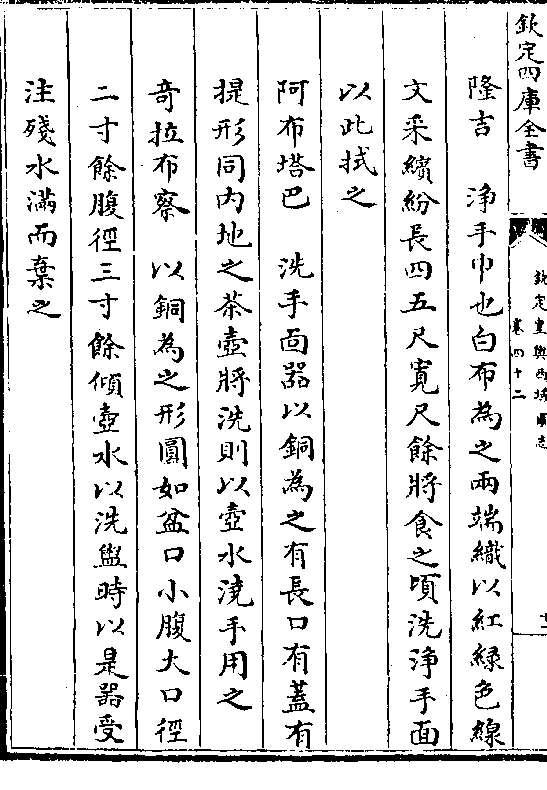 欽定四庫全書
欽定皇輿西域圖志
卷四十二
十二
隆吉　淨手巾也白布為之兩端織以紅綠色線
文采繽紛長四五尺寬尺餘將食之頃洗淨手面
以此拭之
阿布塔巴　洗手面器以銅為之有長口有蓋有
提形同内地之茶壺將洗則以壺水澆手用之
竒拉布察　以銅為之形圓如盆口小腹大口徑
二寸餘腹徑三寸餘傾壺水以洗盥時以是器受
注殘水滿而棄之